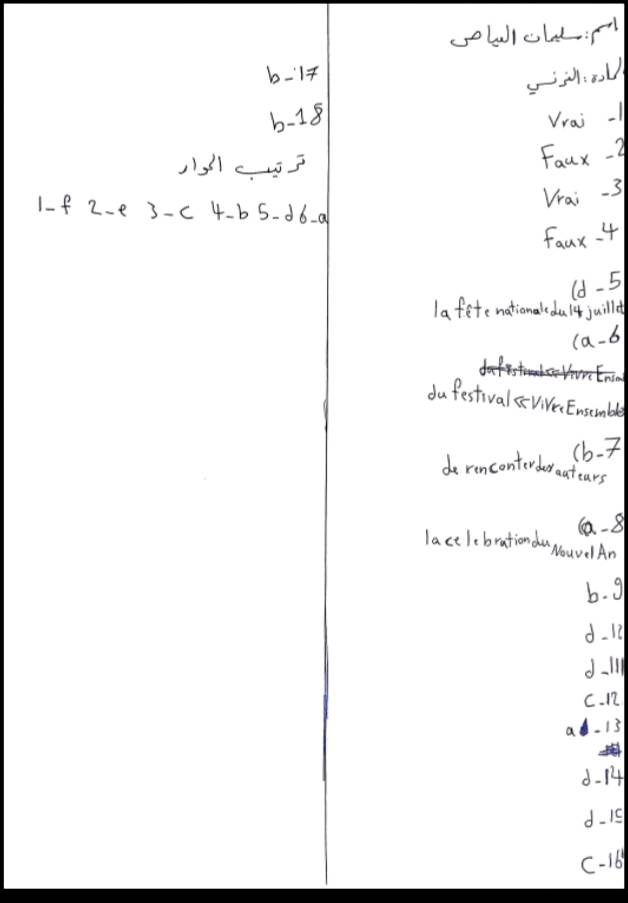 اسم: سليمان البياضي
المادة: الفرنسي
Vrai -1
Faux -2
Vrai -3
Faux -4
(d -5
la fête nationale du 14 juillet
(a-6
du festival «Vivre Ensemble
(b-7
de renconter des auteurs
(a-8
la celebration du Nouvel An
b-9
d-10
d-11
c-12
a-13
d-14
d-15
c-16
b-17
b-18
ترتيب الحوار
1-f 2-e 3-c 4-b 5-d 6-a